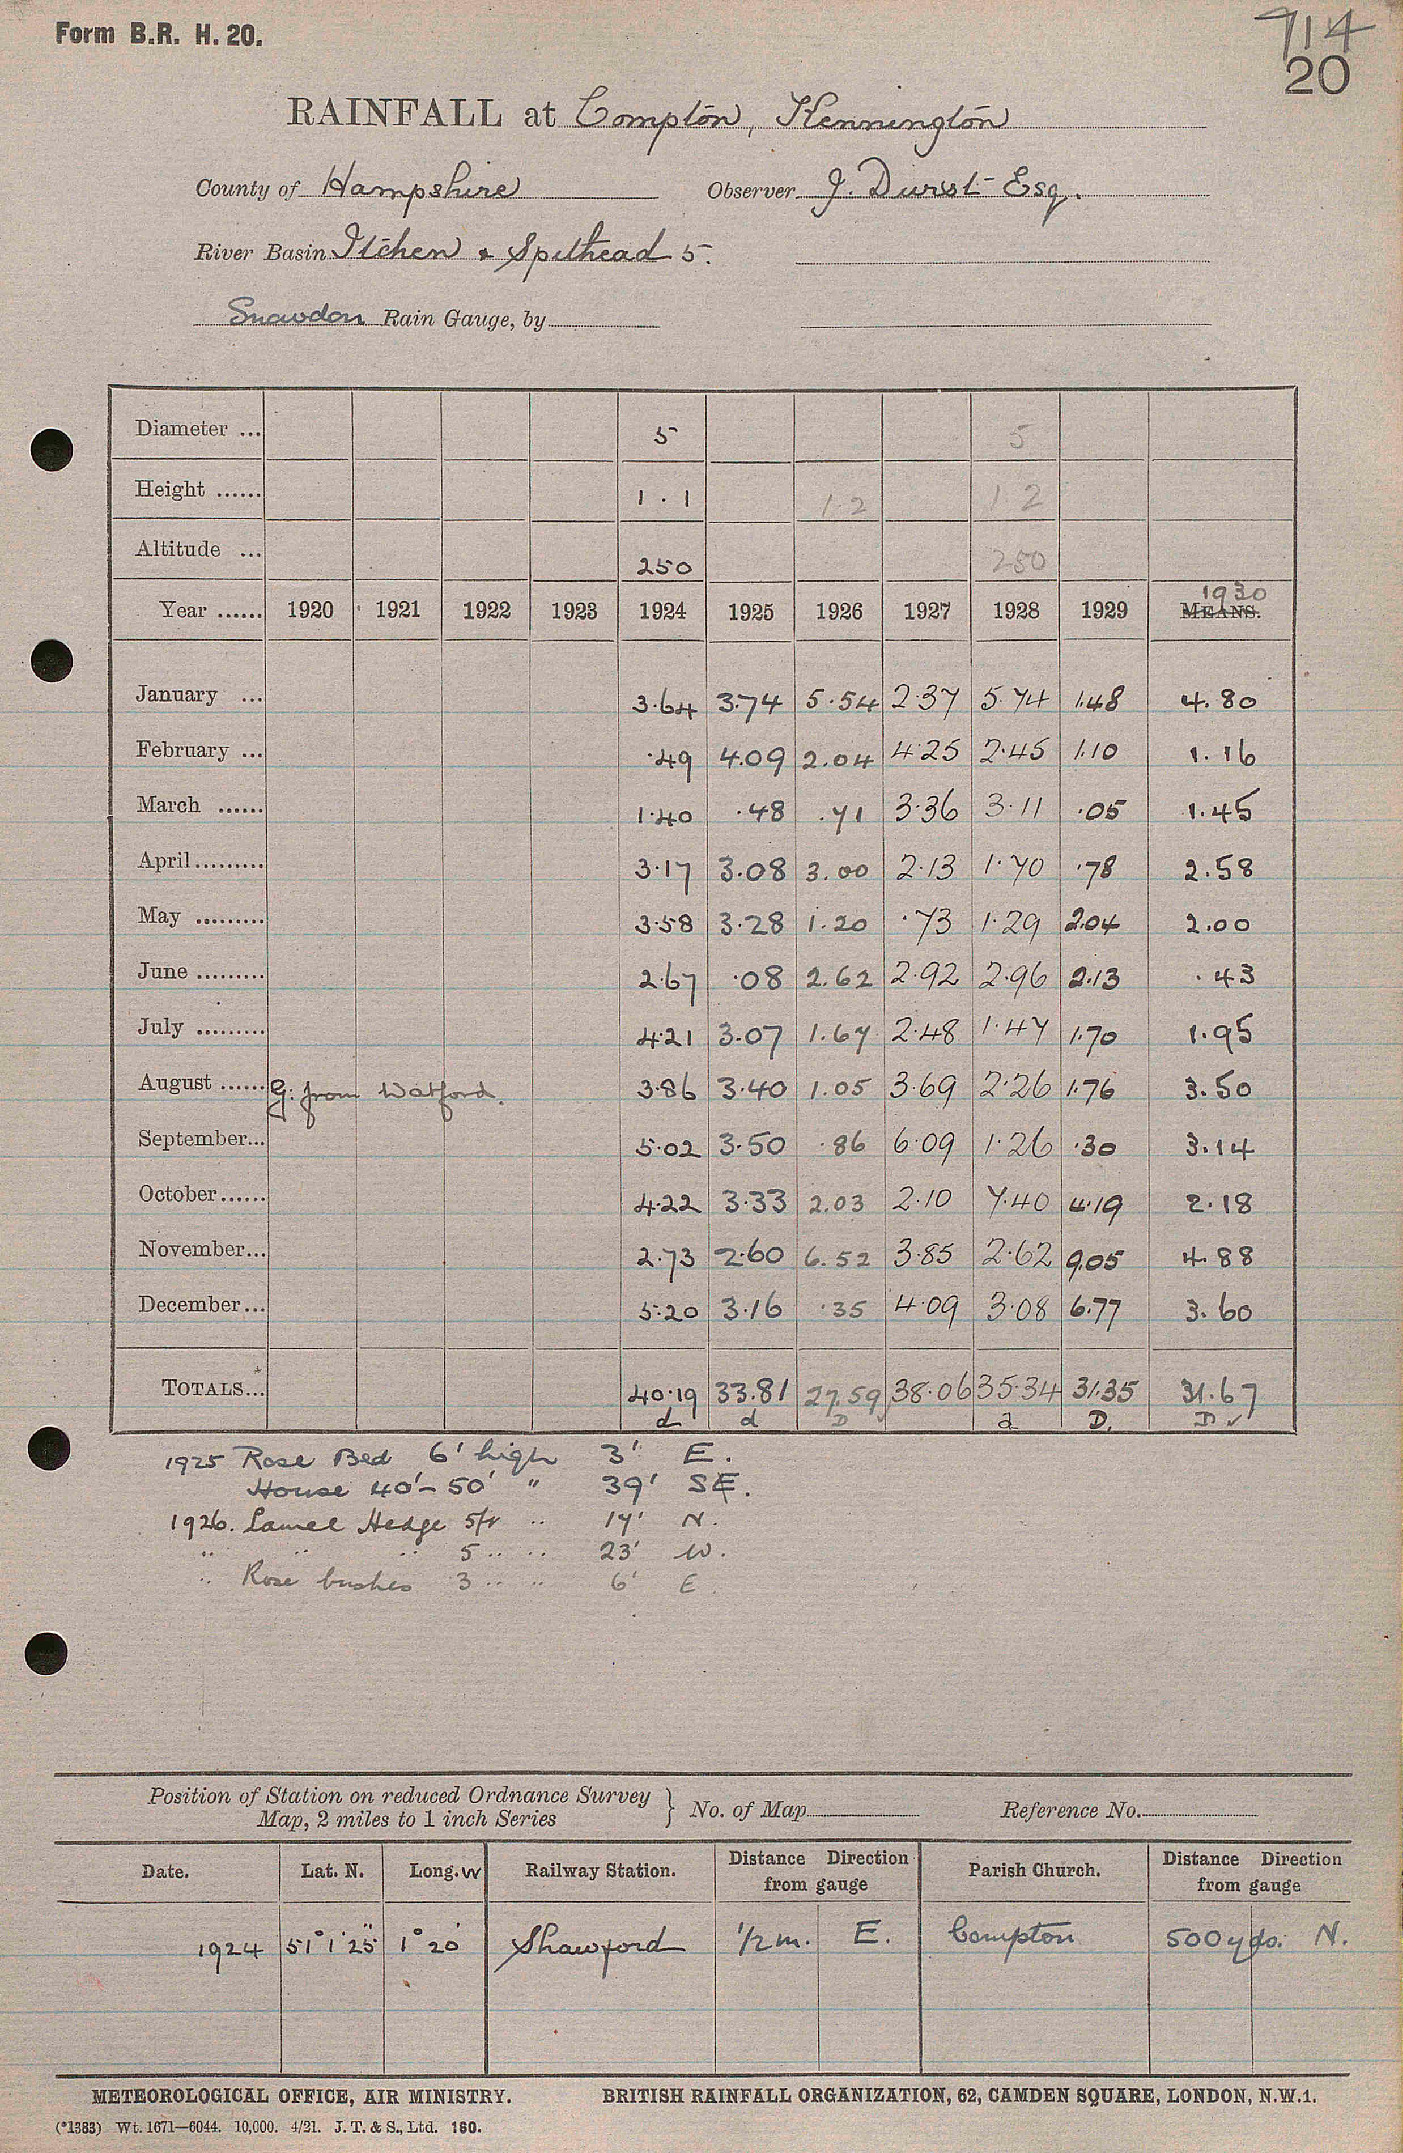 Form B.R. H. 20.
714
20
RAINFALL at Compton, Kennington
County of Hampshire Observer J. Durst Esq.
River Basin Itchen & Spithead 5.
Snowdon Rain Gauge, by
Diameter ... 5 5
Height ...... 1.1 1.2 1 2
Altitude ... 250 250
1930
Year ...... 1920 1921 1922 1923 1924 1925 1926 1927 1928 1929 MEANS.
January ... 3.64 3.74 5.54 2.37 5.74 1.48 4.80
February ... .49 4.09 2.04 4.25 2.45 1.10 1.16
March ...... 1.40 .48 .71 3.36 3.11 .05 1.45
April ......... 3.17 3.08 3.00 2.13 1.70 .78 2.58
May ......... 3.58 3.28 1.20 .73 1.29 2.04 2.00
June ......... 2.67 .08 2.62 2.92 2.96 2.13 .43
July ......... 4.21 3.07 1.67 2.48 1.47 1.70 1.95
August ...... G. from Watford. 3.86 3.40 1.05 3.69 2.26 1.76 3.50
September... 5.02 3.50 .86 6.09 1.26 .30 3.14
October ...... 4.22 3.33 2.03 2.10 7.40 4.19 2.18
November... 2.73 2.60 6.52 3.85 2.62 9.05 4.88
December... 5.20 3.16 .35 4.09 3.08 6.77 3.60
TOTALS... 40.19 33.81 27.59 38.06 35.34 31.35 31.67
d d D a D. D ✓
1925 Rose Bed 6' high 3' E.
House 40'-50' " 39' SE.
1926. Laurel Hedge 5ft .. 17' N.
.. .. .. 5 .. .. 23' W.
.. Rose bushes 3 .. .. 6' E.
Position of Station on reduced Ordnance Survey Map, 2 miles to 1 inch Series } No. of Map Reference No.
Date. Lat. N. Long. W Railway Station. Distance Direction from gauge Parish Church. Distance Direction from gauge
1924 51° 1' 25" 1° 20' Shawford 1/2 m. E. Compton 500 yds. N.
METEOROLOGICAL OFFICE, AIR MINISTRY. BRITISH RAINFALL ORGANIZATION, 62, CAMDEN SQUARE, LONDON, N.W.1.
(*1383) Wt. 1671—6044. 10,000. 4/21. J. T. & S., Ltd. 160.